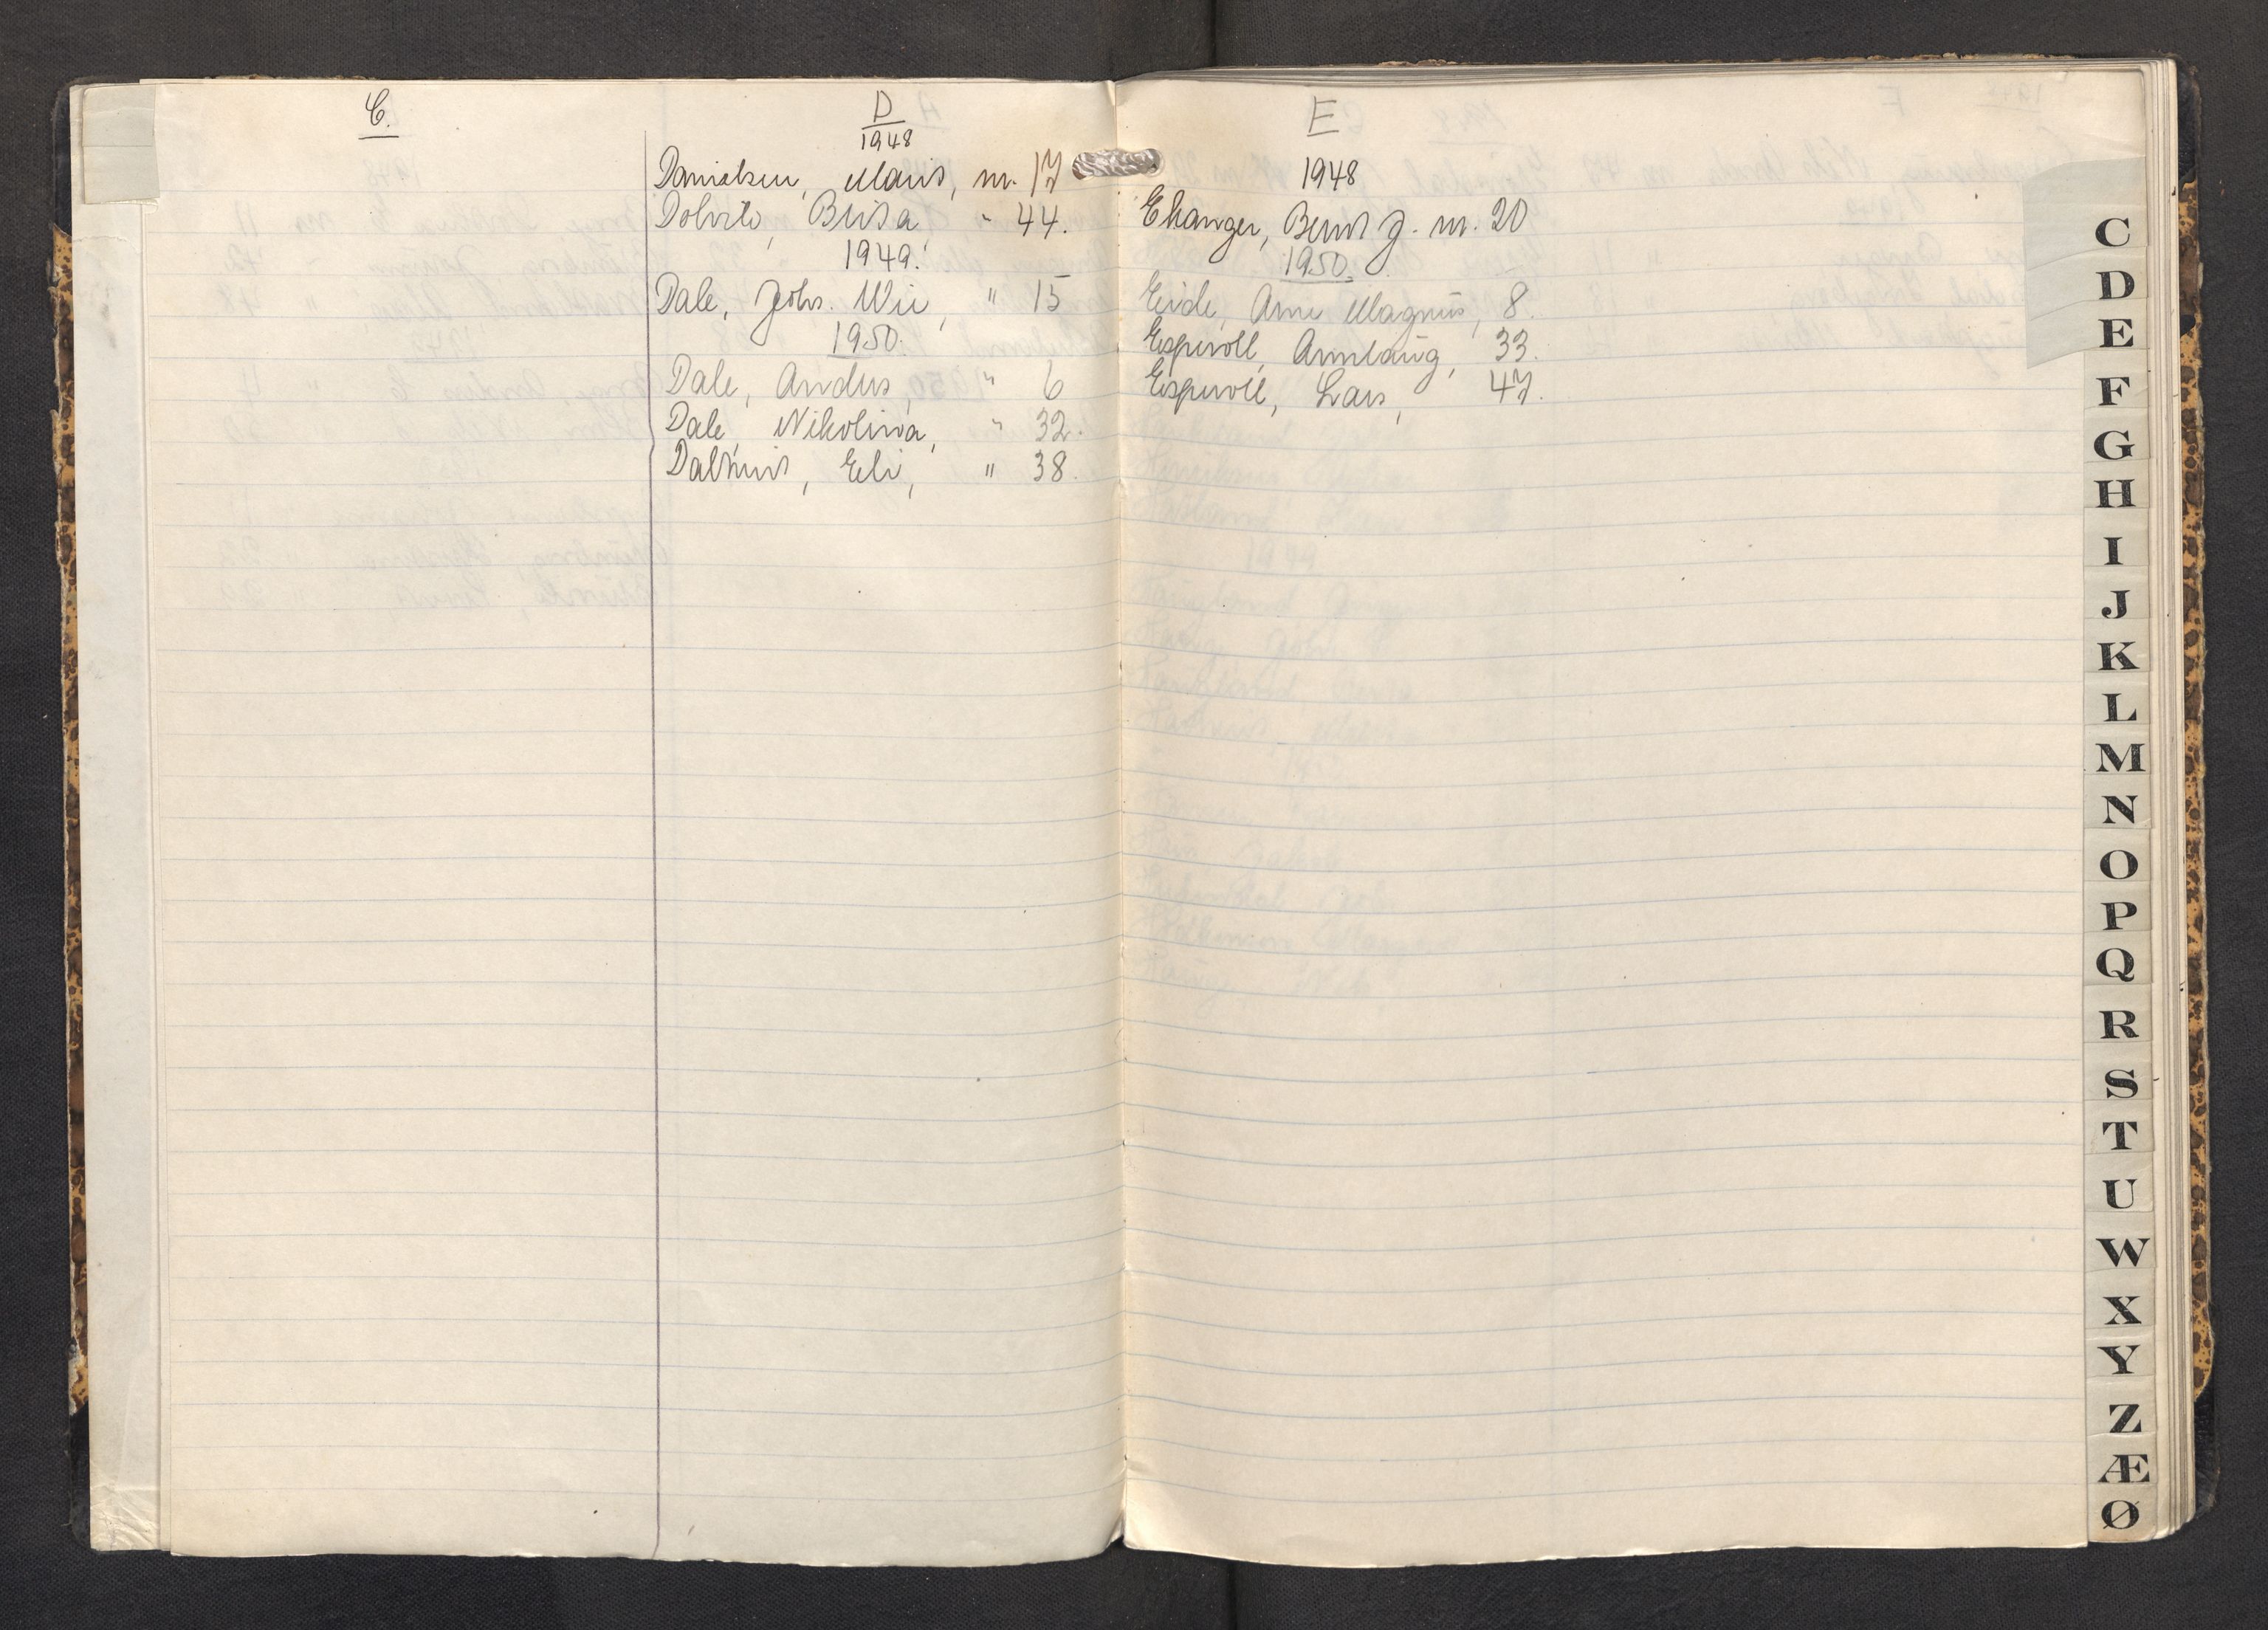 C.
D
1948
Danielsen, Maris, nr. 17
Dolvik, Brita " 44.
1949.
Dale, Johs. Wii, " 15
1950.
Dale, Anders, " 6
Dale, Nikolina, " 32.
Dalhuis, Eli, " 38.
E
1948
Ekanger, Bernt J. nr. 20
1950.
Eide, Arne Magnus, 8.
Espevoll, Annlaug, 33.
Espevoll, Lars, 47.
C
D
E
F
G
H
I
J
K
L
M
N
O
P
Q
R
S
T
U
W
X
Y
Z
Æ
Ø